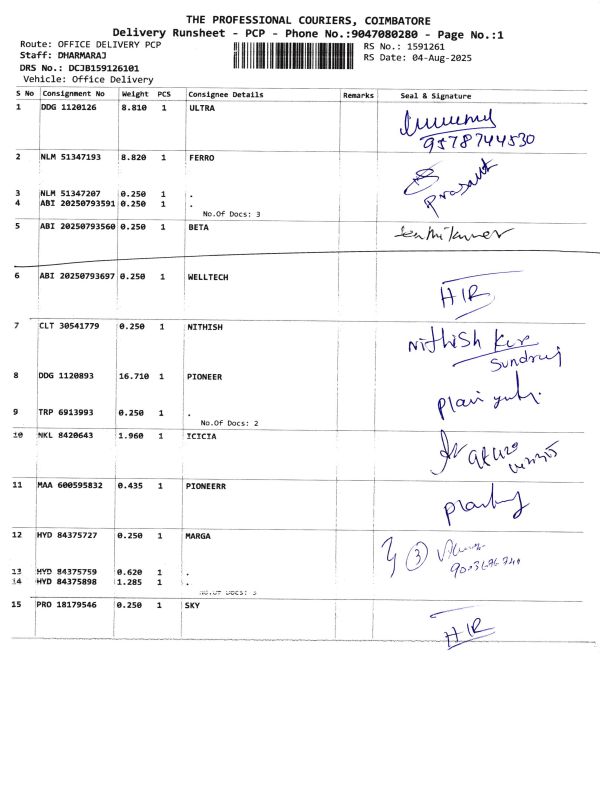 THE PROFESSIONAL COURIERS, COIMBATORE
Delivery Runsheet - PCP - Phone No.:9047080280 - Page No.:1
Route: OFFICE DELIVERY PCP
RS No.: 1591261
Staff: DHARMARAJ
RS Date: 04-Aug-2025
DRS No.: DCJB159126101
Vehicle: Office Delivery
S No Consignment No Weight PCS Consignee Details Remarks Seal & Signature
1 DDG 1120126 8.810 1 ULTRA
9578744530
2 NLM 51347193 8.820 1 FERRO
Prasanth
3 NLM 51347207 0.250 1 .
4 ABI 20250793591 0.250 1 .
No.Of Docs: 3
5 ABI 20250793560 0.250 1 BETA
6 ABI 20250793697 0.250 1 WELLTECH
HIR
7 CLT 30541779 0.250 1 NITHISH
NithiSh
8 DDG 1120893 16.710 1 PIONEER
9 TRP 6913993 0.250 1 .
No.Of Docs: 2
10 NKL 8420643 1.960 1 ICICIA
11 MAA 600595832 0.435 1 PIONEERR
12 HYD 84375727 0.250 1 MARGA
3
13 HYD 84375759 0.620 1 .
14 HYD 84375898 1.285 1 .
No.Of Docs: 3
15 PRO 18179546 0.250 1 SKY
HIR